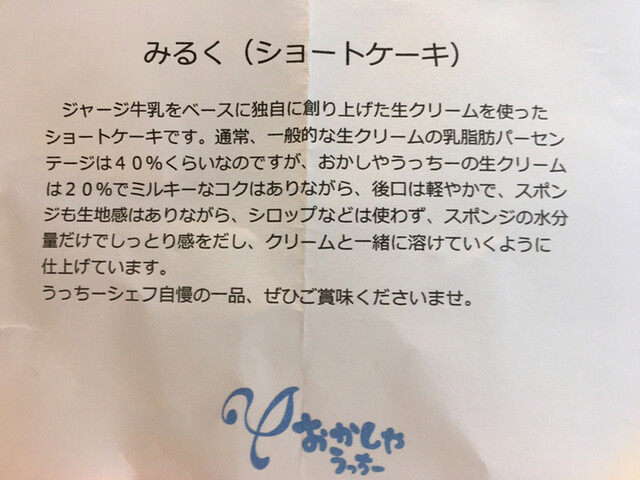 みるく（ショートケーキ）
ジャージ牛乳をベースに独自に創り上げた生クリームを使った
ショートケーキです。通常、一般的な生クリームの乳脂肪パーセン
テージは４０％くらいなのですが、おかしやうっちーの生クリーム
は２０％でミルキーなコクはありながら、後口は軽やかで、スポン
ジも生地感はありながら、シロップなどは使わず、スポンジの水分
量だけでしっとり感をだし、クリームと一緒に溶けていくように
仕上げています。
うっちーシェフ自慢の一品、ぜひご賞味くださいませ。
おかしや
うっちー